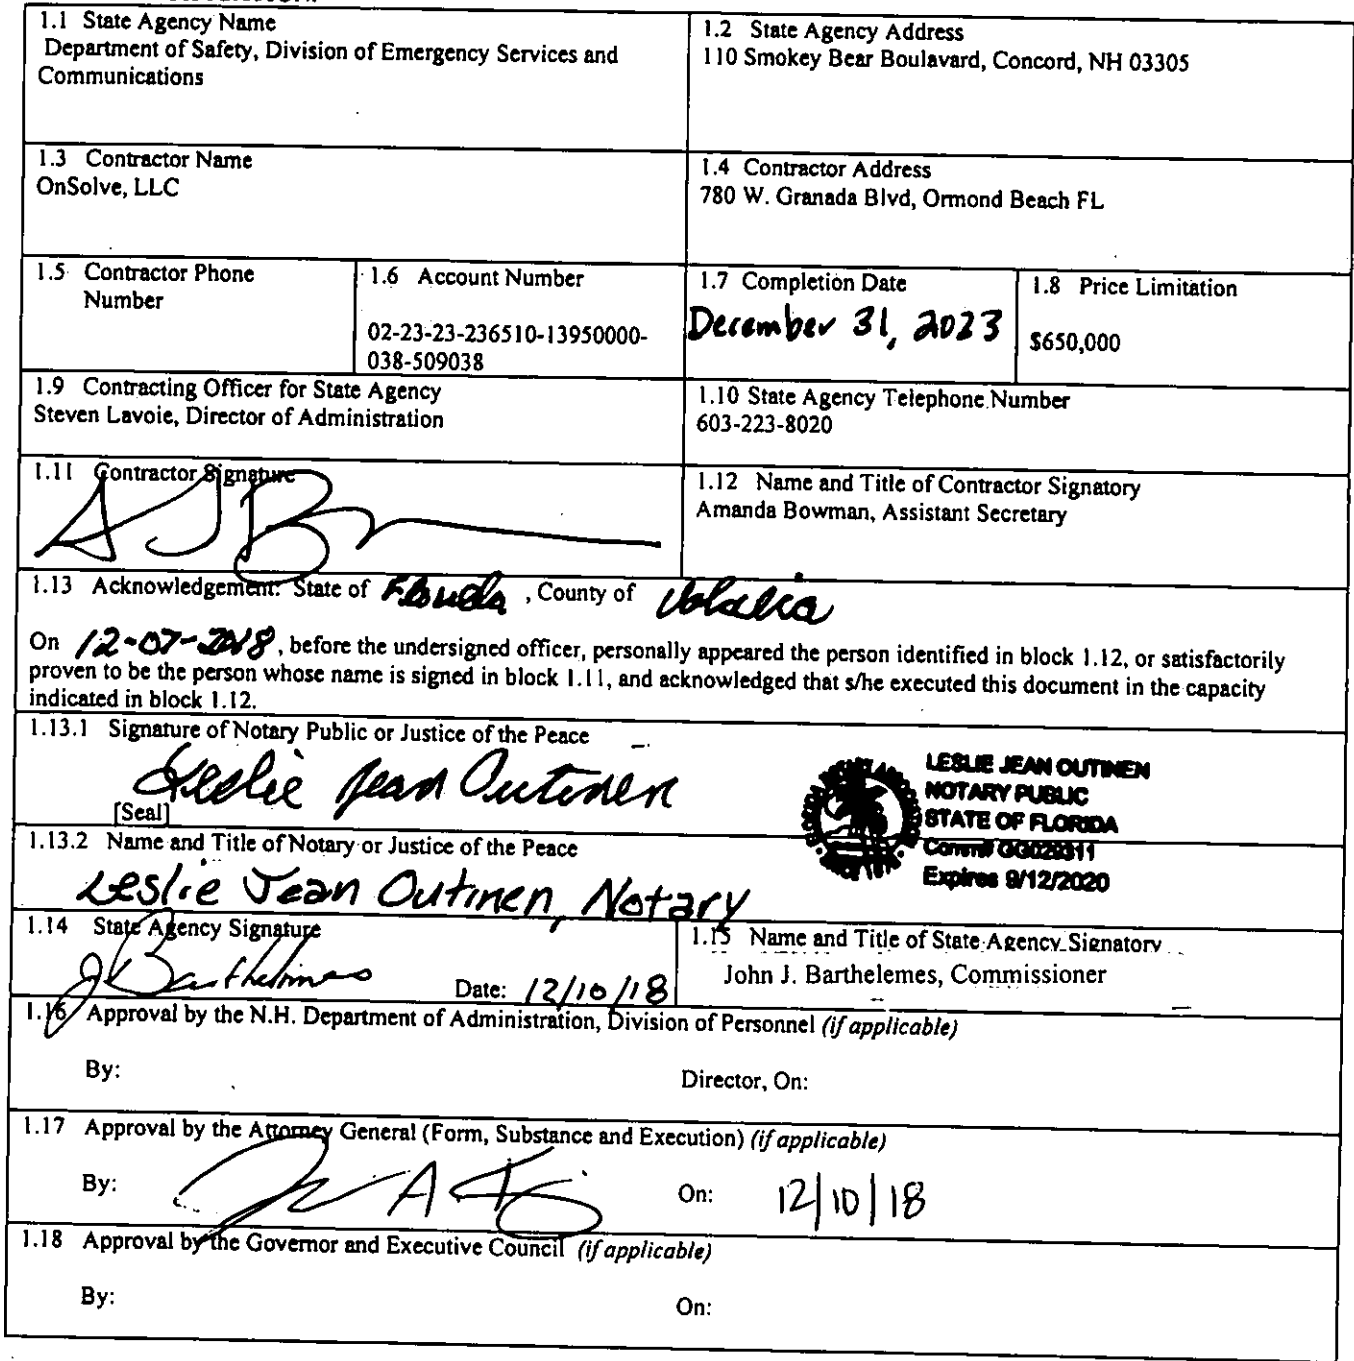 1.1 State Agency Name
Department of Safety, Division of Emergency Services and
Communications
1.2 State Agency Address
110 Smokey Bear Boulavard, Concord, NH 03305
1.3 Contractor Name
OnSolve, LLC
1.4 Contractor Address
780 W. Granada Blvd, Ormond Beach FL
1.5 Contractor Phone
Number
1.6 Account Number
02-23-23-236510-13950000-
038-509038
1.7 Completion Date
December 31, 2023
1.8 Price Limitation
$650,000
1.9 Contracting Officer for State Agency
Steven Lavoie, Director of Administration
1.10 State Agency Telephone Number
603-223-8020
1.11 Contractor Signature
1.12 Name and Title of Contractor Signatory
Amanda Bowman, Assistant Secretary
1.13 Acknowledgement: State of Florida, County of Volusia
On 12-07-2018, before the undersigned officer, personally appeared the person identified in block 1.12, or satisfactorily
proven to be the person whose name is signed in block 1.11, and acknowledged that s/he executed this document in the capacity
indicated in block 1.12.
1.13.1 Signature of Notary Public or Justice of the Peace
Leslie Jean Outinen
[Seal]
LESLIE JEAN OUTINEN
NOTARY PUBLIC
STATE OF FLORIDA
Comm# GG029311
Expires 9/12/2020
1.13.2 Name and Title of Notary or Justice of the Peace
Leslie Jean Outinen, Notary
1.14 State Agency Signature
JBarthelemes
Date: 12/10/18
1.15 Name and Title of State Agency Signatory
John J. Barthelemes, Commissioner
1.16 Approval by the N.H. Department of Administration, Division of Personnel (if applicable)
By:
Director, On:
1.17 Approval by the Attorney General (Form, Substance and Execution) (if applicable)
By:
On: 12/10/18
1.18 Approval by the Governor and Executive Council (if applicable)
By:
On: